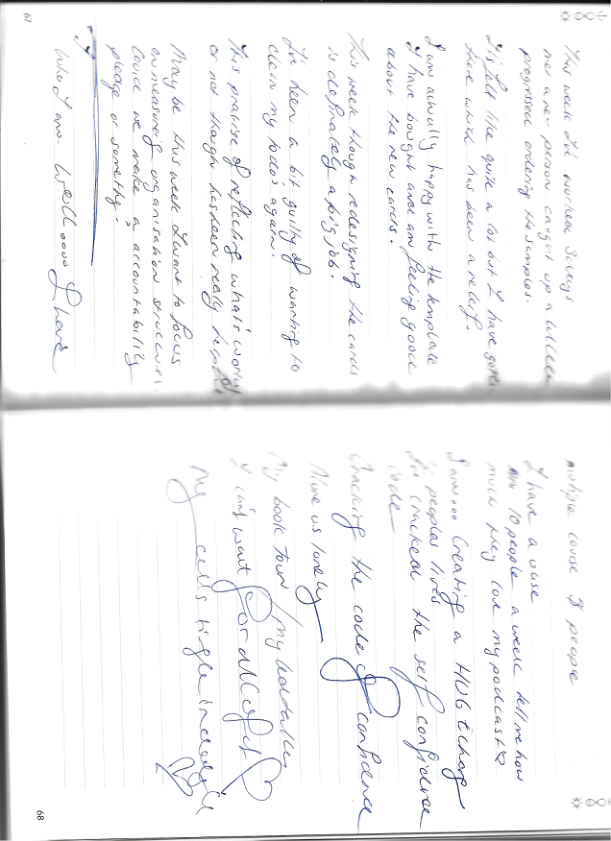 67
This week I've
me a new person caught up a little
progressed ordering the samples.
It's felt like quite a lot but I have gotten
there which has been a relief.
I am actually happy with the template
I have bought and am feeling good
about the new cards.
This week though redesigning the cards
is definately a big job.
I've been a bit guilty of wanting to
clear my todo's again.
This practise of reflecting what's working
or not though has been really helpful
May be this week I want to focus
on measure of organisation structure.
Could we make a accountability
pledge or something?
Who I am. Well.... I have
multiple courses of people
I have a
10 people a week tell me how
much they love my podcast
I am... Creating a HUGE change
in peoples lives
I've cracked the self confidence
code
Cracking the code of confidence
My book tour / my
I can't wait for all of it
My cells tingle
68